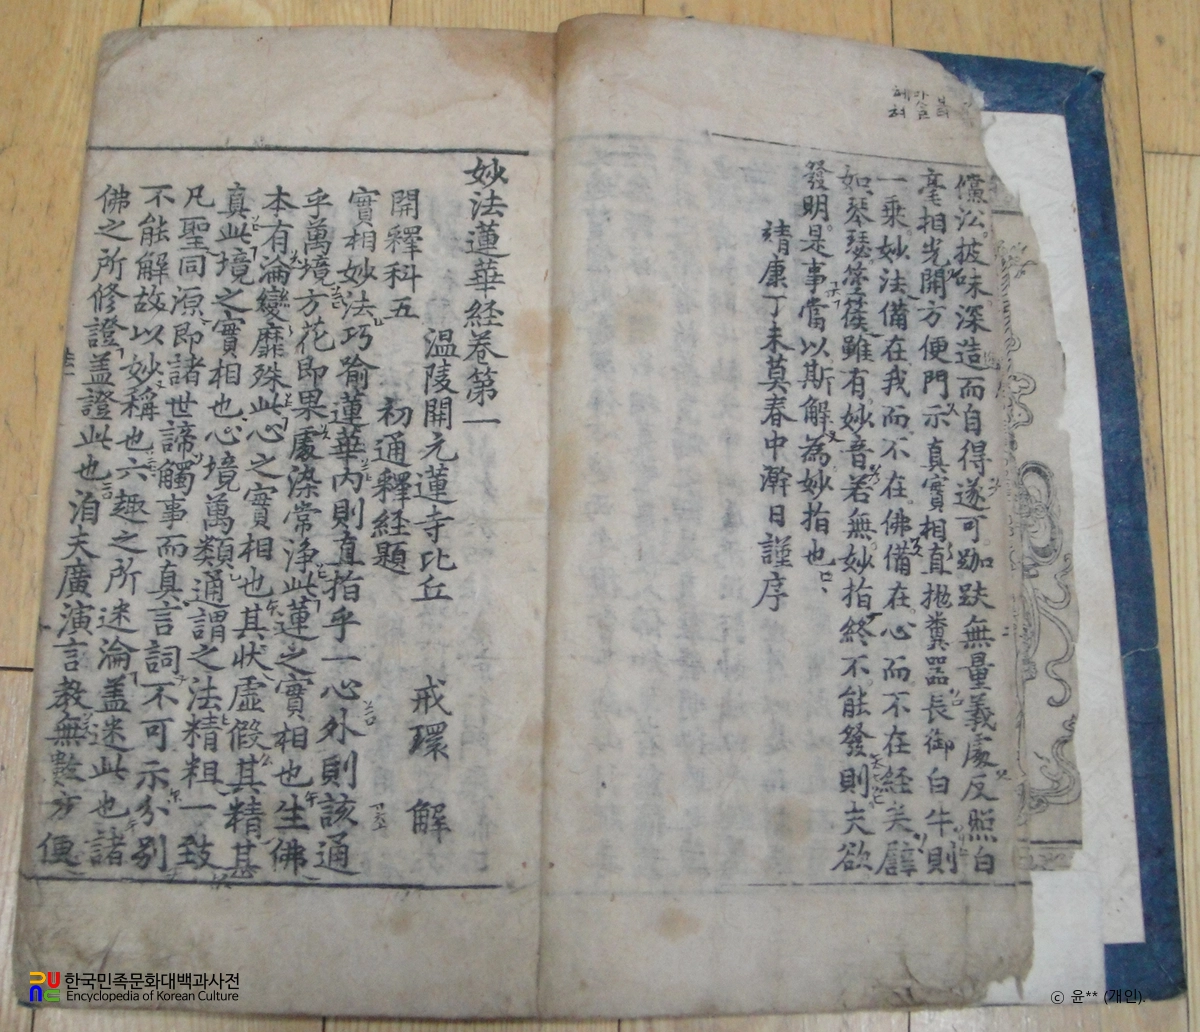 儻㳂披味深造而自得遂可跏趺無量義處反照白
毫相光開方便門示真實相直抛糞器長御白牛則
一乘妙法備在我而不在佛備在心而不在經美譬
如琴瑟箜篌雖有妙音若無妙指終不能發則夫欲
發明是事當以斯解為妙指也
靖康丁未莫春中澣日謹序
妙法蓮華經卷第一
溫陵開元蓮寺比丘 戒環 解
開釋科五 初通釋經題
實相妙法巧喻蓮華內則直指乎一心外則該通
乎萬境方花即果處染常淨此蓮之實相也生佛
本有淪變靡殊此心之實相也其狀虛假其精甚
真此境之實相也心境萬類通謂之法精粗一致
凡聖同源即諸世諦觸事而真言詞不可示分別
不能解故以妙稱也六趣之所迷淪盖迷此也諸
佛之所修證盖證此也洎夫廣演言教無數方便
한국민족문화대백과사전
Encyclopedia of Korean Culture
© 윤** (개인).